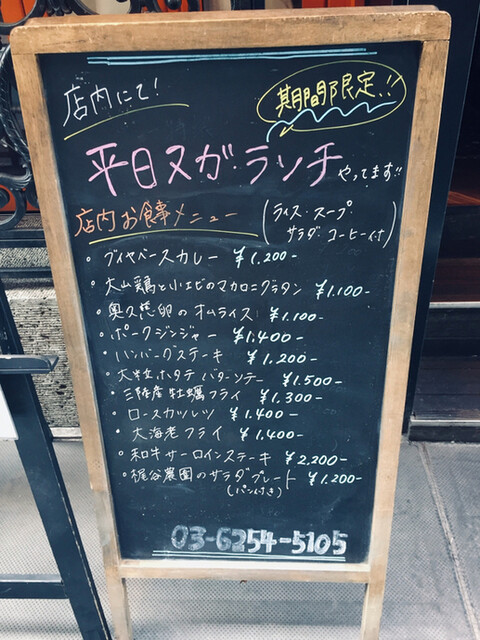 店内にて!
期間限定!!
平日ヌガ・ランチ やってます!!
店内お食事メニュー
(ライス・スープ・
サラダ・コーヒー付)
・ブイヤベースカレー ¥1,200-
・大山鶏と小エビのマカロニグラタン ¥1,100-
・奥久慈卵のオムライス ¥1,100-
・ポークジンジャー ¥1,400-
・ハンバーグステーキ ¥1,200-
・大粒ホタテバターソテー ¥1,500-
・三陸産牡蠣フライ ¥1,300-
・ロースカツレツ ¥1,400-
・大海老フライ ¥1,400-
・和牛サーロインステーキ ¥2,200-
・梶谷農園のサラダプレート ¥1,200-
(パン付き)
03-6254-5105